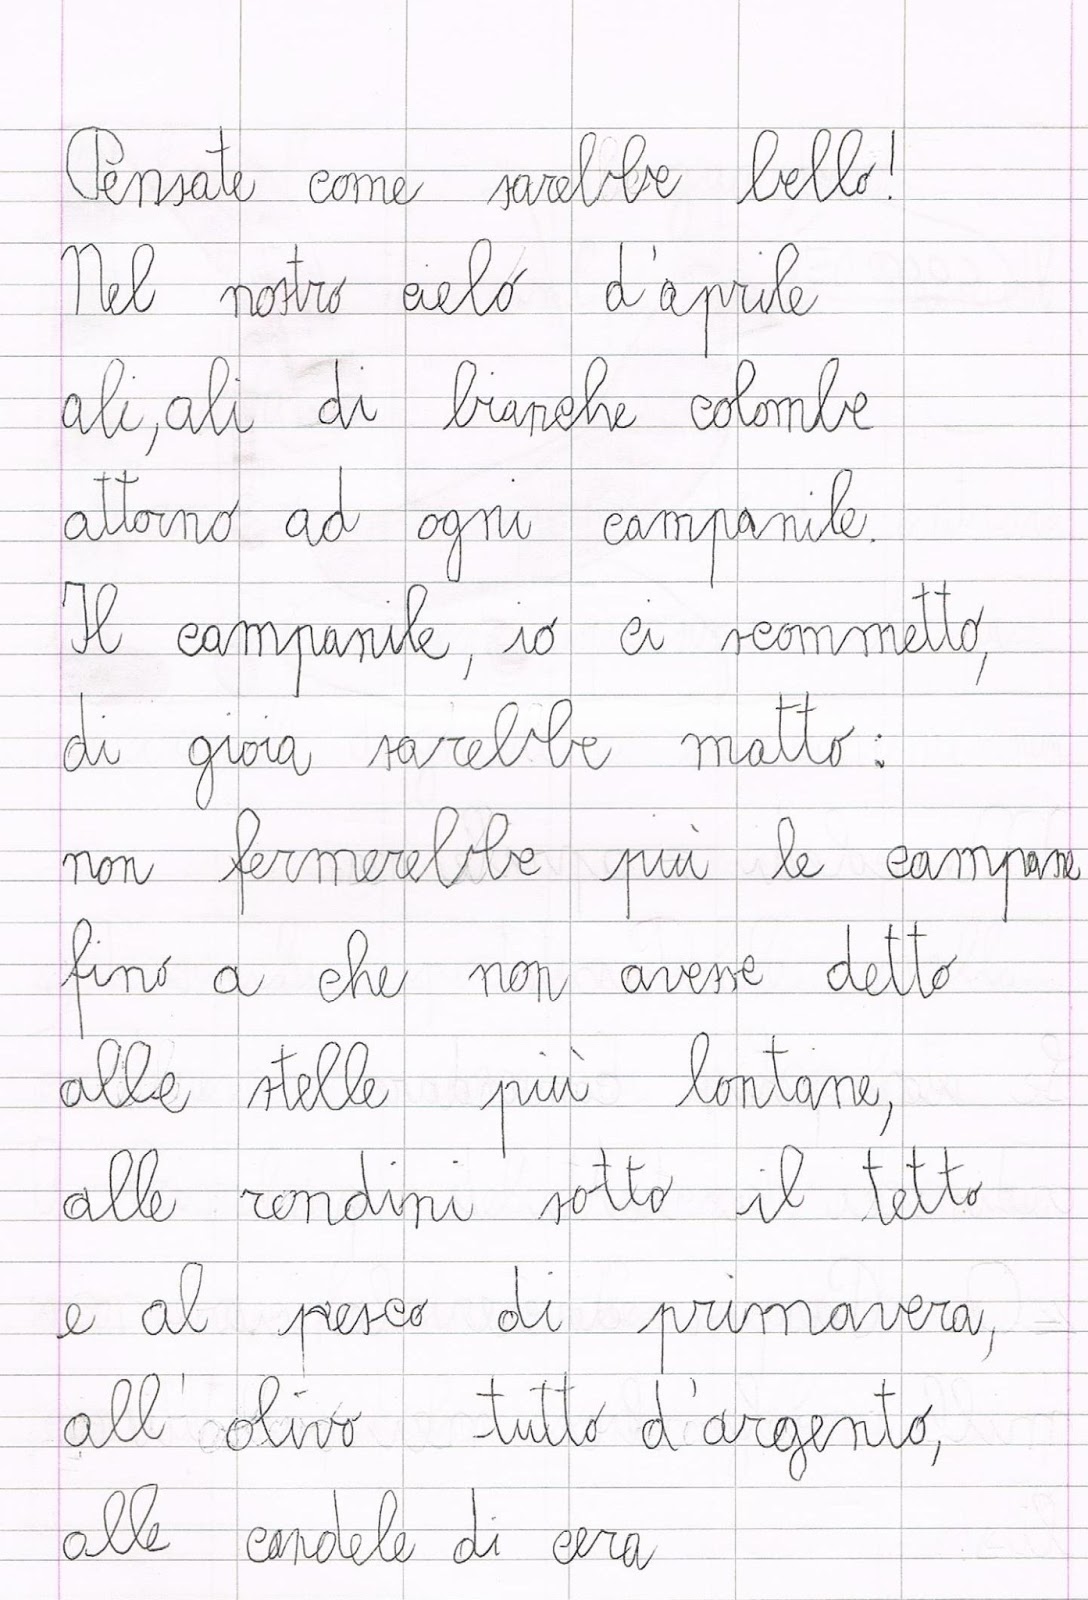 Pensate come sarebbe bello!
Nel nostro cielo d'aprile
ali, ali di bianche colombe
attorno ad ogni campanile.
Il campanile, io ci scommetto,
di gioia sarebbe matto:
non fermerebbe più le campane
fino a che non avesse detto
alle stelle più lontane,
alle rondini sotto il tetto
e al pesco di primavera,
all'olivo tutto d'argento,
alle candele di cera